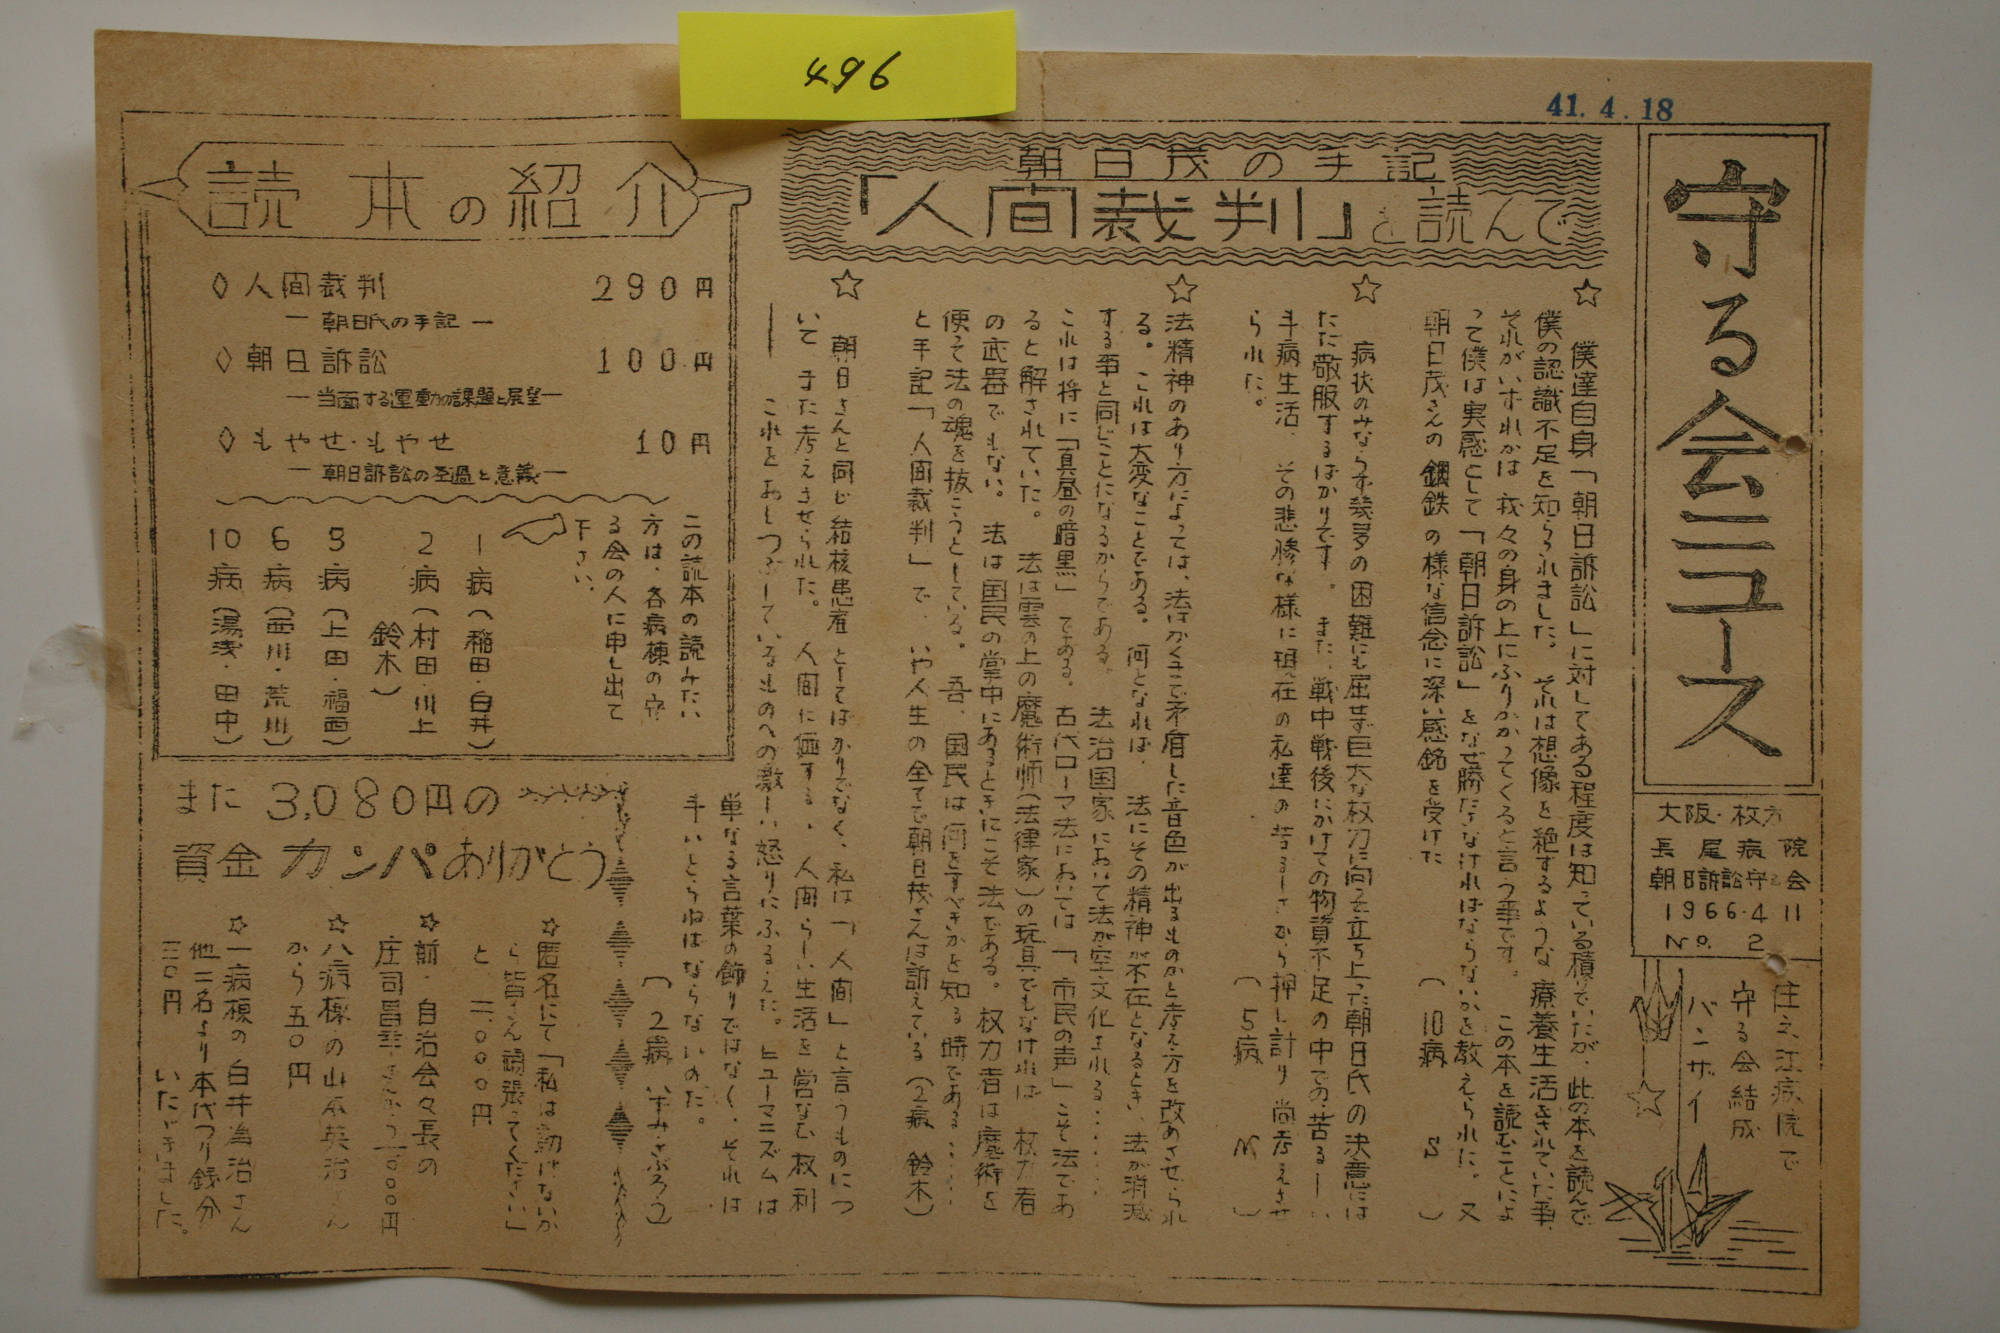 496
41.4.18
守る会ニュース
大阪・枚方
長尾病院
朝日訴訟守る会
1966.4 11
No. 2
住之江病院で
守る会結成
バンザイ
朝日茂の手記
「人間裁判」を読んで
☆
僕達自身「朝日訴訟」に対してある程度は知っている積りでいたが、此の本を読んで
僕の認識不足を知らられました。それは想像を絶するような療養生活をされていた事、
それがいずれかは我々の身の上にふりかかってくると言う事です。この本を読むことによ
って僕は実感として「朝日訴訟」をなぜ勝たなければならないかを教えられた。又
朝日茂さんの鋼鉄の様な信念に深い感銘を受けた
(10病 S )
☆
病状のみならず幾多の困難にも屈せず巨大な权力に向って立ち上った朝日氏の決意には
ただ敬服するばかりです。また、戦中戦後にかけての物資不足の中での苦るしい
斗病生活、その悲惨な様に現在の私達の苦るしさから押し計り尚考えさせ
られた。
(5病 M )
☆
法精神のあり方によっては、法はかくまで矛盾した音色が出るものかと考え方を改めさせられ
る。これは大変なことである。何となれば、法にその精神が不在となるとき、法が消滅
する事と同じことになるからである。法治国家において法が空文化される・・・・・・
これは将に「真昼の暗黒」である。古代ローマ法においては「市民の声」こそ法であ
ると解されていた。法は雲の上の魔術师(法律家)の玩具でもなければ 权力者
の武器でもない。法は国民の掌中にあるときにこそ法である。权力者は魔術を
使って法の魂を抜こうとしている。吾、国民は何をすべきかを知る時である・・・・・
と手記「人間裁判」で、いや人生の全てで朝日茂さんは訴えている(2病 鈴木)
☆
朝日さんと同じ結核患者としてばかりでなく、私は「人間」と言うものにつ
いて また考えさせられた。人間に価する、人間らしい生活を営なむ权利
― これをおしつぶしているものへの激しい怒りにふるえた。ヒューマニズムは
単なる言葉の飾りではなく、それは
斗いとらねばならないのだ。
(2病 いずみ・さぶろう)
読本の紹介
◇人間裁判 290円
― 朝日氏の手記 ―
◇朝日訴訟 100円
―当面する運動の課題と展望―
◇もやせ・もやせ 10円
― 朝日訴訟の経過と意義―
この読本の読みたい
方は、各病棟の守
る会の人に申し出て
下さい。
1病(稲田・白井)
2病(村田・川上
鈴木)
5病(上田・福西)
6病(西川・荒川)
10病(湯浅・田中)
また3,080円の
資金カンパありがとう
☆匿名にて「私は動けないか
ら皆さん頑張ってください」
と 二、〇〇〇円
☆前・自治会々長の
庄司昌
☆八病棟の山本英治さん
から五〇円
☆一病棟の白井清治さん
他二名より本代つり銭分
三〇円 いただきました。